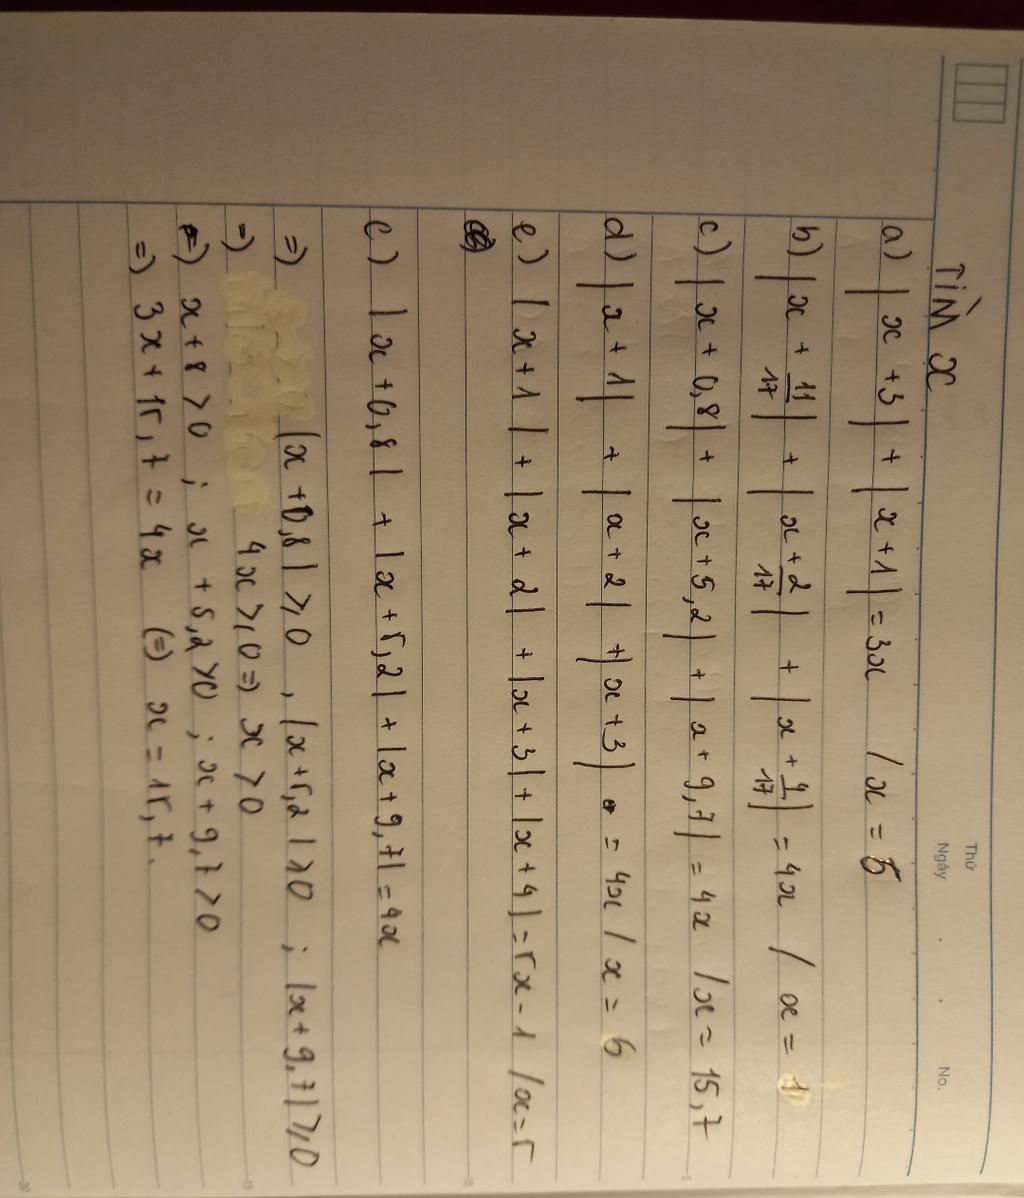 Thứ
Ngày . . No.
TÌM x
a) |x+3| + |x+1| = 3x / x = 5
b) |x + 11/17| + |x + 2/17| + |x + 4/17| = 4x / x = 1
c) |x+0,8| + |x+5,2| + |x+9,7| = 4x / x = 15,7
d) |x+1| + |x+2| + |x+3| = 4x / x = 6
e) |x+1| + |x+2| + |x+3| + |x+4| = 5x - 1 / x = 5
c) |x+0,8| + |x+5,2| + |x+9,7| = 4x
=) |x+0,8| ⩾ 0 , |x+5,2| ⩾ 0 ; |x+9,7| ⩾ 0
=) 4x ⩾ 0 =) x > 0
=) x+8 > 0 ; x + 5,2 > 0 ; x + 9,7 > 0
=) 3x + 15,7 = 4x (=) x = 15,7.